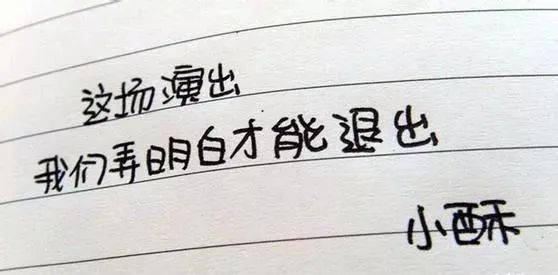 这场演出
我们弄明白才能退出
小酥